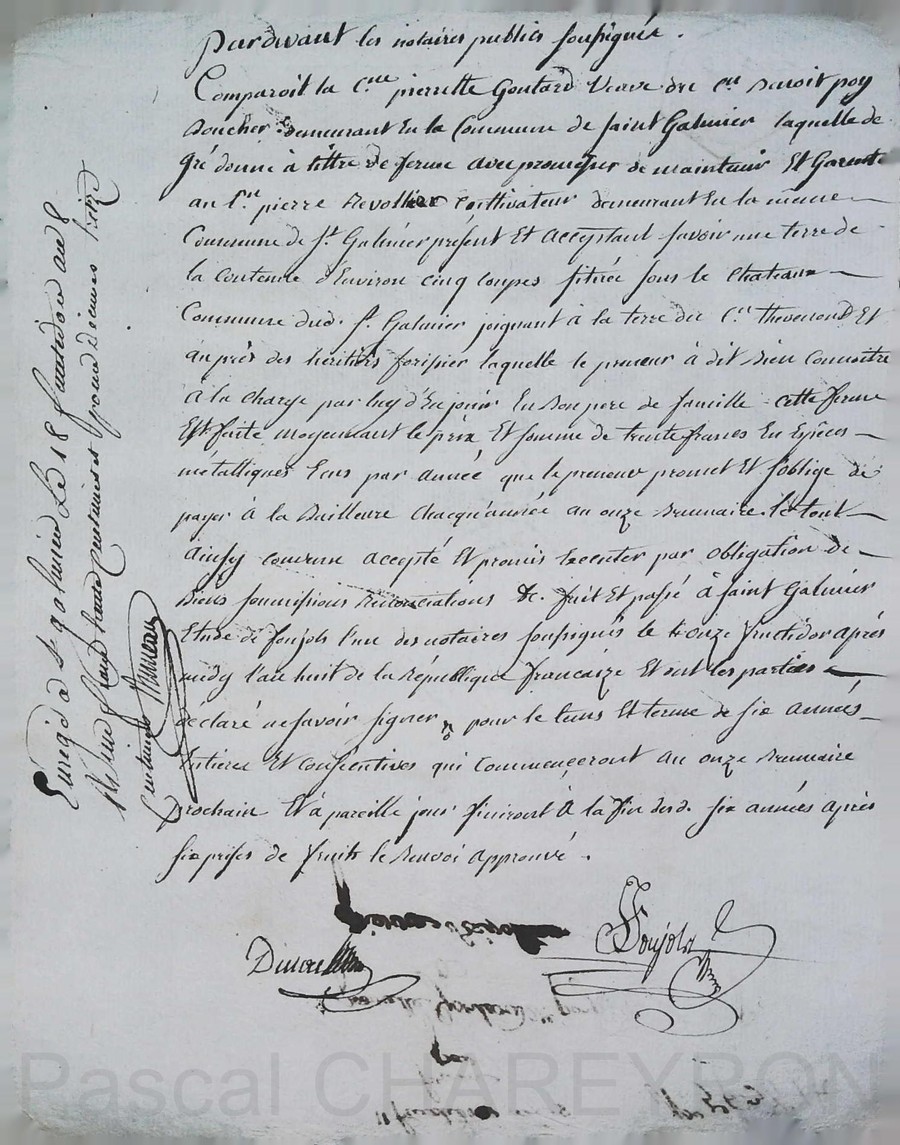 Pardevant les notaires publics soussignés.
Comparoit la C.nne pierrette Goutard Veuve du C.en Benoit poy
Boucher demeurant En la Commune de saint Galmier laquelle de
gré donne à tittre de ferme avec promesse de maintenir Et Garantir
au C.en pierre Revollier Cultivateur demeurant En la meme
Commune de S.t Galmier present Et acceptant savoir une terre de
la Contenue d'Environ cinq coupes situèe sous le Chateau
Commune dud. S.t Galmier joignant à la terre du C.en Thevenond Et
au près des héritiers forissier laquelle le preneur à dit Bien Connoitre
à la Charge par luy d'En jouir En Bon pere de famille cette ferme
Est faite moyennant le prix Et somme de trente francs En Espèces
métalliques Ecus par année que le preneur promet Et s'oblige de
payer à la Bailleure Chaqu'année au onze Brumaire. le tout
ainsy convenu accepté Et promis Executer par obligation de
Biens soumissions Renonciations &c. fait Et passé à saint Galmier
Etude de foujols l'un des notaires soussignés le onze fructidor après
midy l'an huit de la République francaize Et ont les parties
déclaré ne savoir signer pour le tems Et terme de six années
Entieres Et consécutives qui commenceront au onze Brumaire
prochain Et à pareille jour finiront à la fin desd. six années après
six prises de fruits le Renvoi approuvé.
Foujols
Enreg.é à S.t galmier Le 18 fructidor an 8
Reçu
centimes
Pascal CHAREYRON